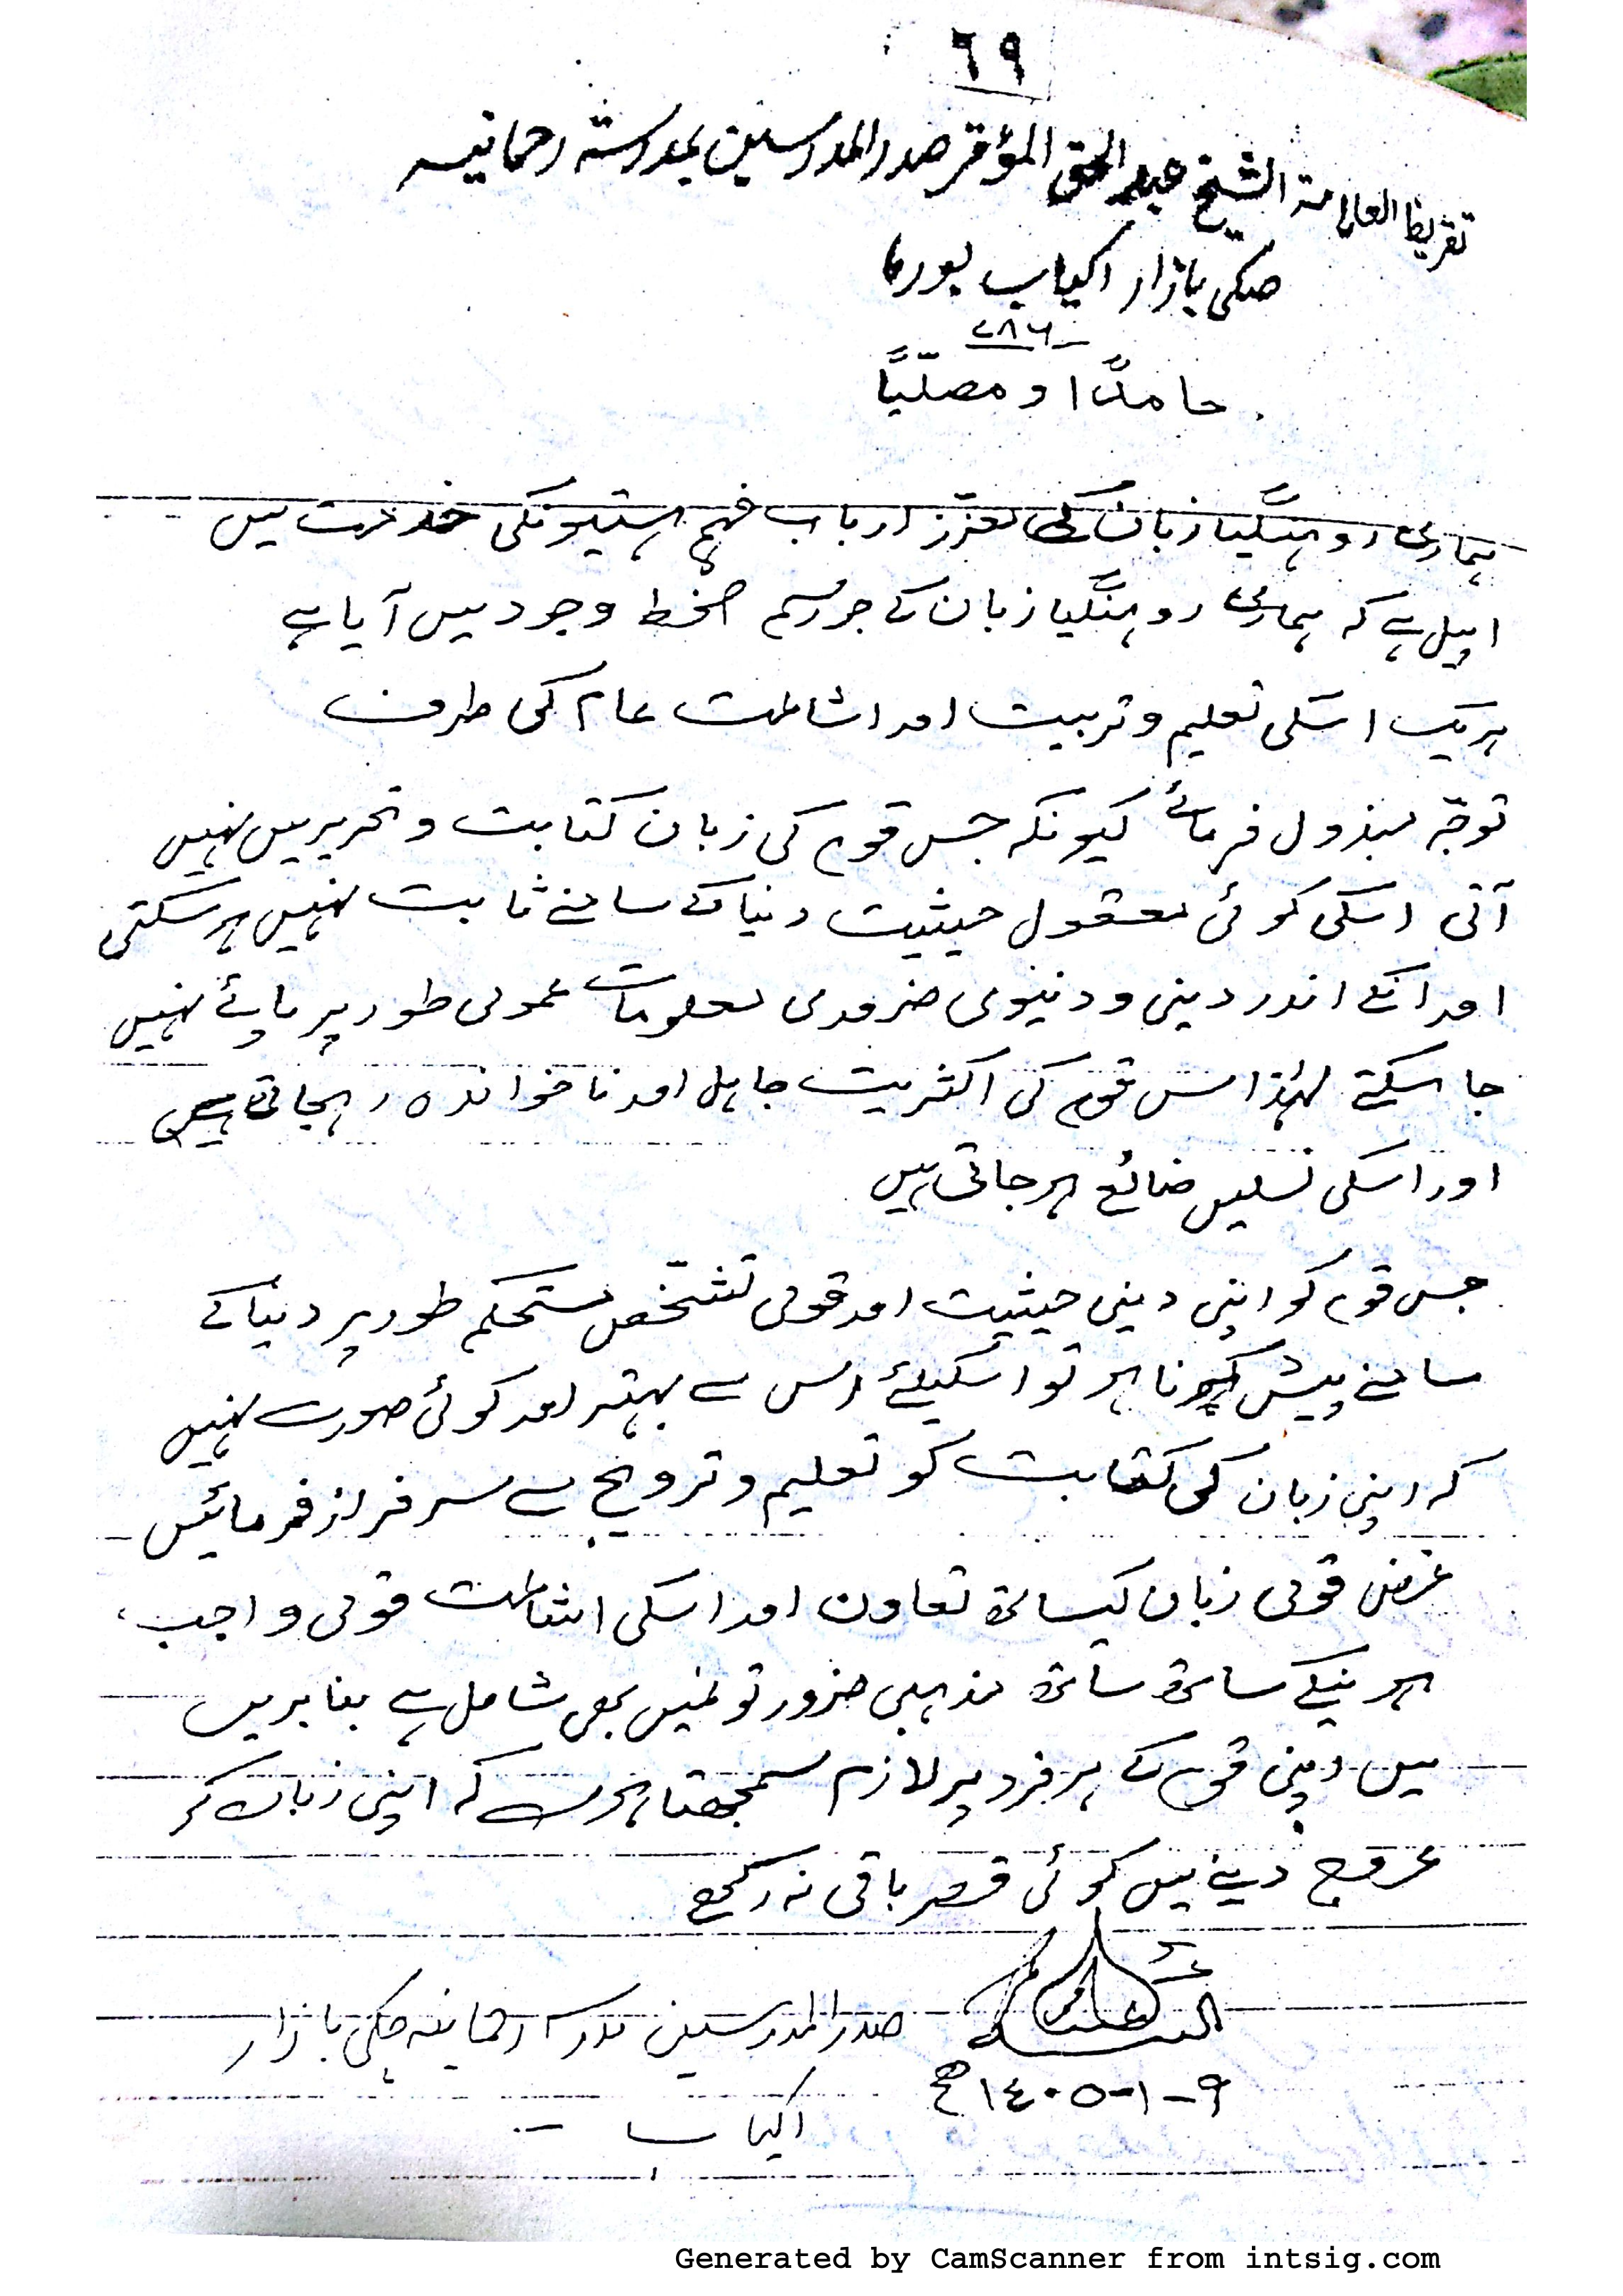 ٦٩
تقريظ العلامة الشيخ عبد الحق المؤقر صدر المدرسين بمدرسة رحمانيه
صكى بازار اكياب بورما
۷۸۶
حامدًا و مصلّيًا
ہماری روہنگیا زبان کی معزز ارباب فہم ہستیونکی خدمت میں
اپیل ہے کہ ہماری روہنگیا زبان کے جو رسم الخط وجود میں آیا ہے
ہریک اسکی تعلیم و تربیت اور اشاعت عام کی طرف
توجّہ مبذول فرمائے کیونکہ جس قوم کی زبان کتابت و تحریر میں نہیں
آتی اسکی کوئی معقول حیثیت دنیا کے سامنے ثابت نہیں ہوسکتی
اور انکے اندر دینی و دنیوی ضروری معلومات عمومی طور پر پائے نہیں
جا سکتے لہٰذا اس قوم کی اکثریت جاہل اور ناخواندہ رہجاتی ہیں
اور اسکی نسلیں ضائع ہوجاتی ہیں
جس قوم کو اپنی دینی حیثیت اور قومی تشخّص مستحکم طور پر دنیا کے
سامنے پیش کرنا ہو تو اسکیلئے اس سے بہتر اور کوئی صورت نہیں
کہ اپنی زبان کی کتابت کو تعلیم و ترویج سے سرفراز فرمائیں
غرض قومی زبان کیساتھ تعاون اور اسکی اشاعت قومی واجب
ہونیکے ساتھ ساتھ مذہبی ضرورتونمیں بھی شامل ہے بنا بریں
میں اپنی قوم کے ہر فرد پر لازم سمجھتا ہوں کہ اپنی زبان کو
عروج دینے میں کوئی قصر باقی نہ رکھے
صدر المدرسین مدرسہ رحمانیہ چکی بازار
٩-١-١٤٠٥ھ
اکیاب
Generated by CamScanner from intsig.com